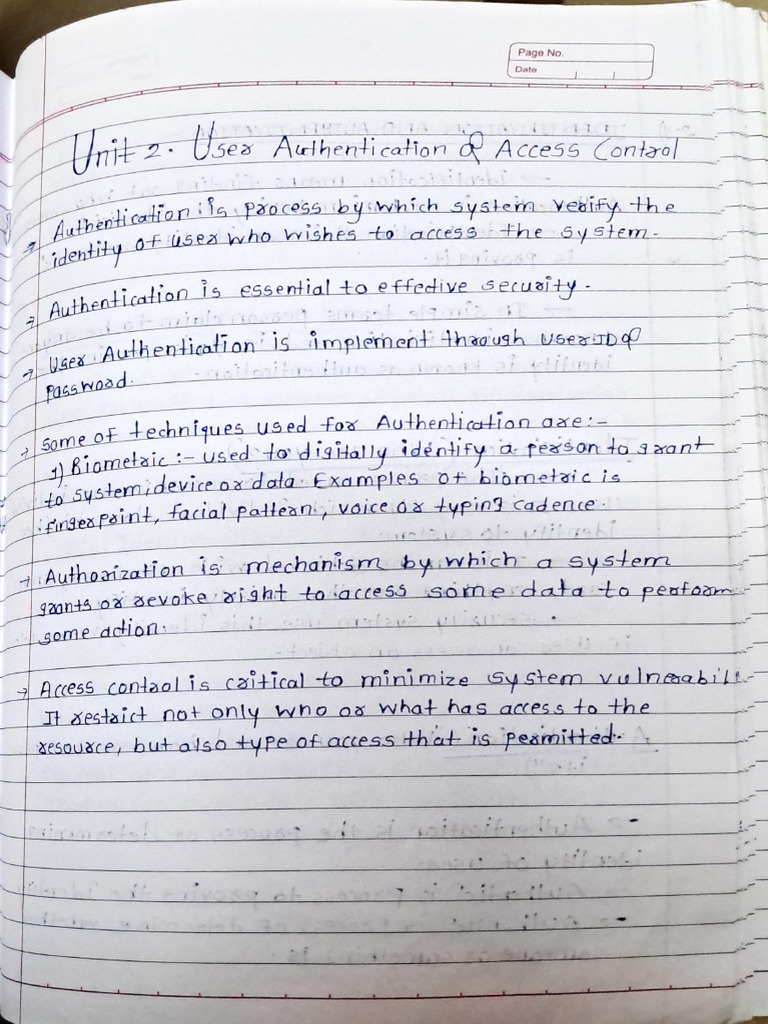 Page No.
Date
Unit 2. User Authentication & Access Control
→ Authentication is process by which system verify the
identity of user who wishes to access the system.
→ Authentication is essential to effective security.
→ User Authentication is implement through User ID &
Password.
→ Some of techniques used for Authentication are:-
1) Biometric :- used to digitally identify a person to grant
to system, device or data. Examples of biometric is
fingerprint, facial pattern, voice or typing cadence.
→ Authorization is mechanism by which a system
grants or revoke right to access some data to perform
some action.
→ Access control is critical to minimize system vulnerabil
It restrict not only who or what has access to the
resource, but also type of access that is permitted.